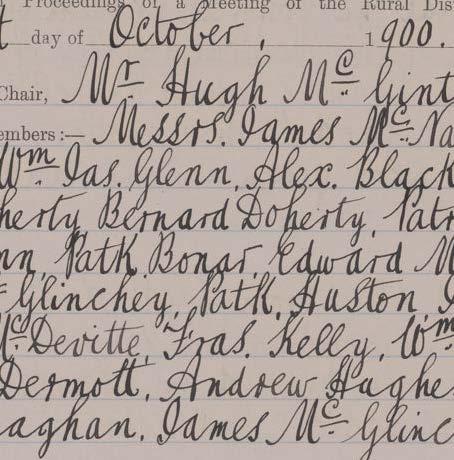 Proceedings of a Meeting of the Rural Dist
t day of October, 1900.
Chair, Mr Hugh McGint
embers:— Messrs. James McNa
Wm Jas. Glenn, Alex. Black
herty, Bernard Doherty, Patr
nn, Patk. Bonar, Edward M
c Glinchey, Patk. Huston, J
McDevitte, Fras. Kelly, Wm
Dermott, Andrew Hughe
aghan, James McGlinc